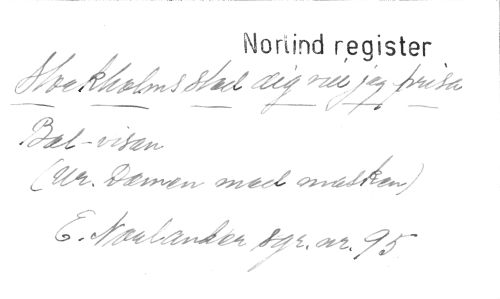 Norlind register
Stockholms stad dig vill jag prisa
Bal-visan
(Ur. Damen med masken)
E. Norlander sgr. nr. 95